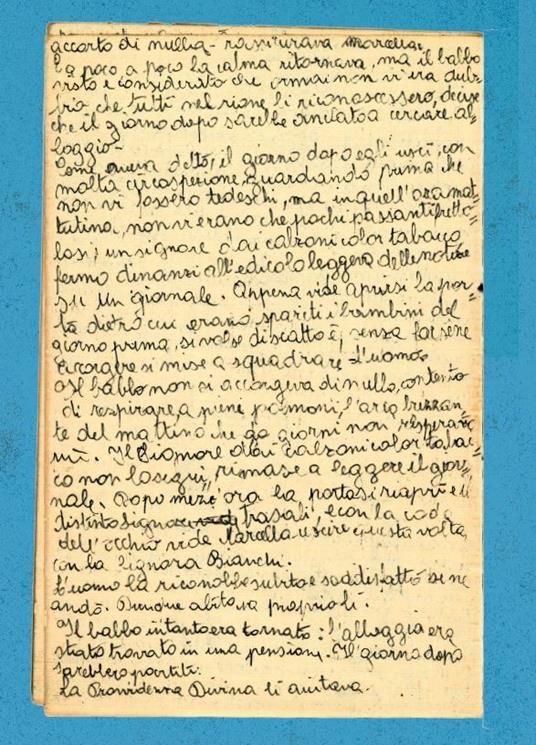 accorto di nulla - rassicurava Marcella.
E a poco, a poco la calma ritornava, ma il babbo
visto e considerato che ormai non vi era dub=
bio che tutti nel rione li riconoscessero, decise
che il giorno dopo sarebbe andato a cercare al=
loggio -
Come aveva detto, il giorno dopo egli uscì, con
molta circospezione, guardando prima che
non vi fossero tedeschi, ma in quell'ora mat=
tutina, non vi erano che pochi passanti fretto=
losi; un signore dai calzoni color tabacco
fermo dinanzi all'edicola leggeva delle notizie
su un giornale. Appena vide aprirsi la por=
ta dietro cui erano spariti i bambini del
giorno prima, si volse di scatto e, senza farsene
accorgere si mise a squadrare l'uomo.
Il babbo non si accorgeva di nulla, contento
di respirare a pieni polmoni, l'aria frizzan=
te del mattino che da giorni non respirava
più. Il Signore dai calzoni color tabac=
co non lo seguì, rimase a leggere il gior=
nale. Dopo mezz'ora la porta si riaprì e il
distinto signore trasalì, e con la coda
dell'occhio vide Marcella uscire questa volta
con la Signora Bianchi.
L'uomo la riconobbe subito e soddisfatto se ne
andò. Dunque abitava proprio lì.
Il babbo intanto era tornato: l'alloggio era
stato trovato in una pensione. Il giorno dopo
sarebbero partiti.
La Provvidenza Divina li aiutava.